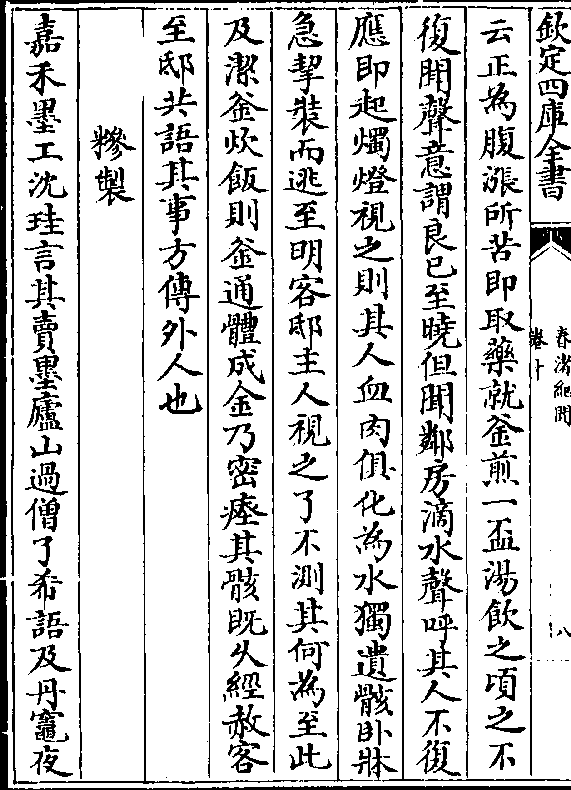 欽定四庫全書
春渚紀聞
卷十
八
云正為腹漲所苦即取藥就釜煎一盃湯飲之頃之不
復聞聲意謂良已至曉但聞鄰房滴水聲呼其人不復
應即起燭燈視之則其人血肉俱化為水獨遺骸卧牀
急挈裝而逃至明客邸主人視之了不測其何為至此
及潔釜炊飯則釜通體成金乃密瘞其骸既久經赦客
至邸共語其事方傳外人也
糝製
嘉禾墨工沈珪言其賣墨廬山過僧了希語及丹竈夜